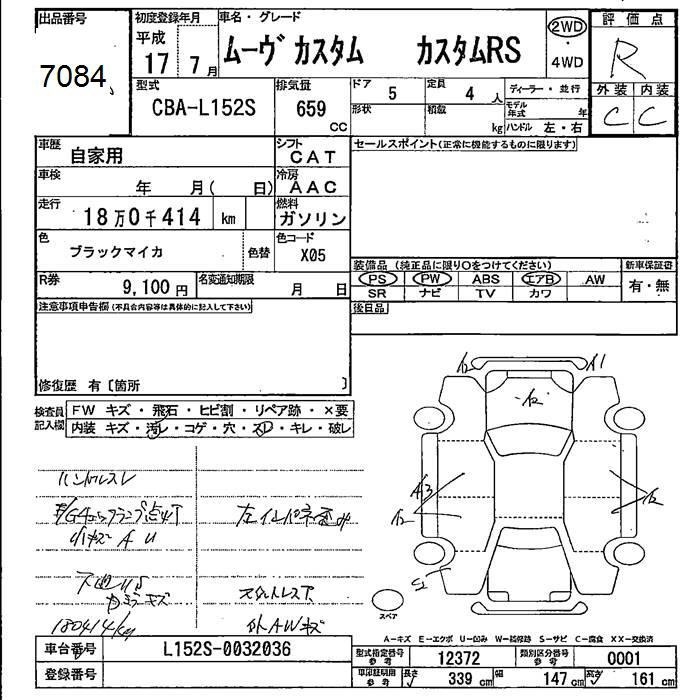 出品番号
7084
初度登録年月
平成
17 7月
車名・グレード
ムーヴカスタム カスタムRS
2WD
・
4WD
評価点
R
外装 内装
C C
型式
CBA-L152S
排気量
659
CC
ドア
5
定員
4人
ディーラー・並行
形状
積載
kg
モデル年式
年
ハンドル 左・右
車歴
自家用
シフト
CAT
車検
年 月( 日)
冷房
AAC
走行
18万0千414 km
燃料
ガソリン
色
ブラックマイカ
色替
色コード
X05
R券
9,100円
名変通知期限
月 日
セールスポイント(正常に機能するものに限ります)
装備品 (純正品に限り○をつけてください)
新車保証書
PS PW ABS エアB AW
有・無
SR ナビ TV カワ
後日品
注意事項申告欄(不具合内容等は具体的に記入して下さい)
修復歴 有〔箇所 〕
検査員記入欄
FW キズ・飛石・ヒビ割・リペア跡・×要
内装 キズ・汚レ・コゲ・穴・スレ・キレ・破レ
ハンドルスレ
小キズ A U
180414km
外AWキズ
A2
A1
A2
A3
A2
A2
スペア
A-キズ E-エクボ U-凹み W-補修跡 S-サビ C-腐食 XX-交換済
車台番号
L152S-0032036
登録番号
型式指定番号
参考
12372
類別区分番号
参考
0001
車庫証明用
参考
長さ
339 cm
幅
147 cm
高さ
161 cm